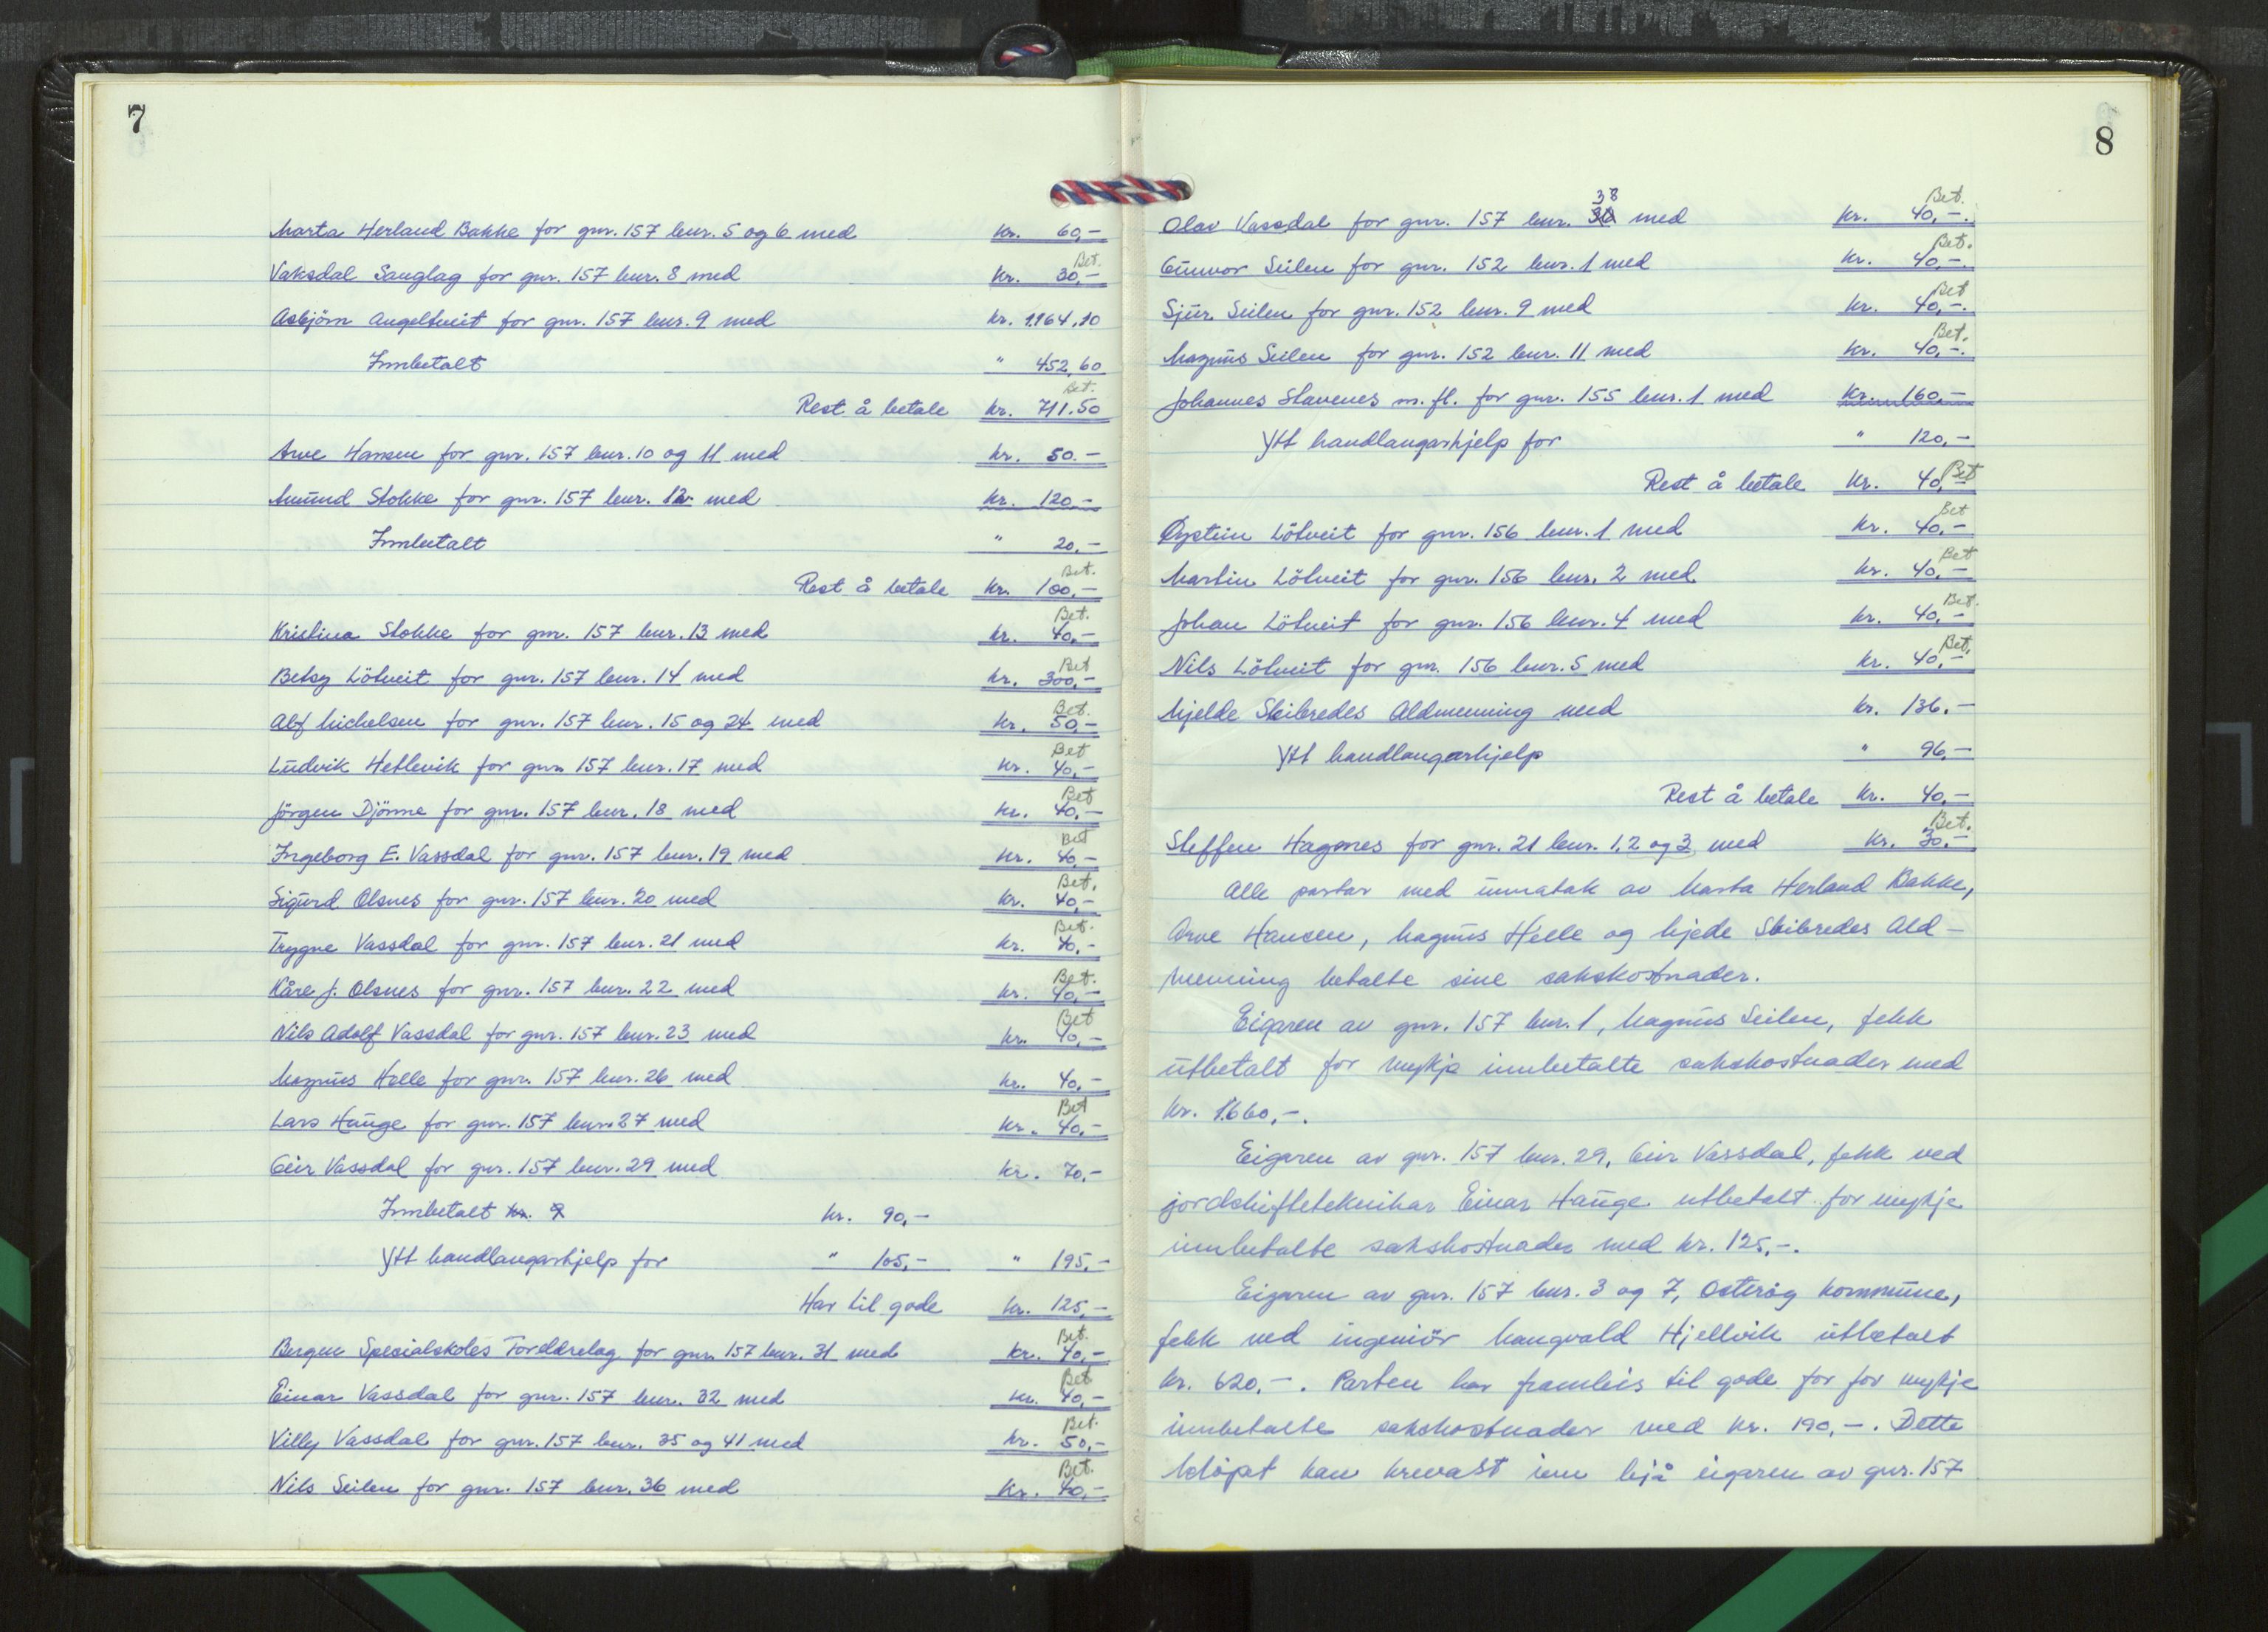 7
Marta Herland Bakke for gnr. 157 bnr. 5 og 6 med kr. 60,-
Vaksdal Sauglag for gnr. 157 bnr. 8 med kr. 30,- Bet.
Asbjörn Angeltveit for gnr. 157 bnr. 9 med kr. 1164,10
Innbetalt " 452,60
Rest å betale kr. 711.50 Bet.
Arve Hansen for gnr. 157 bnr. 10 og 11 med kr. 50.-
Amund Stokke for gnr. 157 bnr. 12 med kr. 120,-
Innbetalt " 20,-
Rest å betale kr. 100,- Bet.
Kristina Stokke for gnr. 157 bnr. 13 med kr. 40,- Bet.
Betsy Lötveit for gnr. 157 bnr. 14 med kr. 300,- Bet
Alf Michelsen for gnr. 157 bnr. 15 og 24 med kr. 50,- Bet.
Ludvik Hetlevik for gnr. 157 bnr. 17 med kr. 40,- Bet
Jörgen Djönne for gnr. 157 bnr. 18 med kr. 40,- Bet
Ingeborg E. Vassdal for gnr. 157 bnr. 19 med kr. 40,- Bet
Sigurd Olsnes for gnr. 157 bnr. 20 med kr. 40,- Bet.
Trygve Vassdal for gnr. 157 bnr. 21 med kr. 40,- Bet.
Kåre J. Olsnes for gnr. 157 bnr. 22 med kr. 40,- Bet.
Nils Adolf Vassdal for gnr. 157 bnr. 23 med kr. 40,- Bet
Magnus Helle for gnr. 157 bnr. 26 med kr. 40,-
Lars Hauge for gnr. 157 bnr. 27 med kr. 40,- Bet
Geir Vassdal for gnr. 157 bnr. 29 med kr. 70,-
Innbetalt kr. 9 kr. 90,-
Ytt handlangarhjelp for " 105,- " 195,-
Har til gode kr. 125,-
Bergen Spesialskoles Foreldrelag for gnr. 157 bnr. 31 med kr. 40,- Bet.
Einar Vassdal for gnr. 157 bnr. 32 med kr. 40,- Bet
Villy Vassdal for gnr. 157 bnr. 35 og 41 med kr. 50,- Bet.
Nils Seilen for gnr. 157 bnr. 36 med kr. 40,- Bet.
8
Olav Vassdal for gnr. 157 bnr. 38 med kr. 40,-. Bet.
Gunvor Seilen for gnr. 152 bnr. 1 med kr. 40,-. Bet.
Sjur Seilen for gnr. 152 bnr. 9 med kr. 40,-. Bet
Magnus Seilen for gnr. 152 bnr. 11 med kr. 40,-. Bet.
Johannes Stavenes m. fl. for gnr. 155 bnr. 1 med kr. 160,-
Ytt handlangarhjelp for " 120,-
Rest å betale kr. 40,- Bet
Øystein Lötveit for gnr. 156 bnr. 1 med kr. 40,- Bet
Martin Lötveit for gnr. 156 bnr. 2 med kr. 40,- Bet
Johan Lötveit for gnr. 156 bnr. 4 med kr. 40,- Bet.
Nils Lötveit for gnr. 156 bnr. 5 med kr. 40,- Bet.
Mjelde Skibredes Aldmenning med kr. 136.-
Ytt handlangarhjelp " 96,-
Rest å betale kr. 40,-
Steffen Hagenes for gnr. 21 bnr. 1, 2 og 3 med kr. 30.- Bet.
Alle partar med unnatak av Marta Herland Bakke,
Arve Hansen, Magnus Helle og Mjede Skibredes Ald-
menning betalte sine sakskostnader.
Eigaren av gnr. 157 bnr. 1, Magnus Seilen, fekk
utbetalt for mykje innbetalte sakskostnader med
kr. 1660,-.
Eigaren av gnr. 157 bnr. 29, Geir Vassdal, fekk ved
jordskifteteknikar Einar Hauge utbetalt for mykje
innbetalte sakskostnader med kr. 125,-.
Eigaren av gnr. 157 bnr. 3 og 7, Osteröy kommune,
fekk ved ingeniör Mangvald Hjellvik utbetalt
kr. 620,-. Parten har framleis til gode for for mykje
innbetalte sakskostnader med kr. 190,-. Dette
belöpet kan krevast inn hjå eigaren av gnr. 157